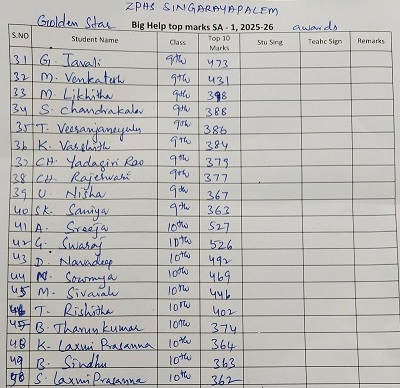 ZPHS SINGARAYAPALEM
Golden Star Big Help top marks SA - 1, 2025-26 awards
S.NO Student Name Class Top 10 Marks Stu Sing Teahc Sign Remarks
31 G. Javali 9th 473
32 M. Venkatesh 9th 431
33 M. Likhitha 9th 398
34 S. Chandrakala 9th 388
35 T. Veeranjaneyulu 9th 386
36 K. Varshith 9th 384
37 CH. Yadagiri Rao 9th 379
38 CH. Rajeswari 9th 377
39 U. Nisha 9th 367
40 SK. Saniya 9th 363
41 A. Sreeja 10th 527
42 G. Swaraj 10th 526
43 D. Navadeep 10th 492
44 N. Sowmya 10th 469
45 M. Sivaiah 10th 446
46 T. Rishitha 10th 402
47 B. Tharun kumar 10th 374
48 K. Laxmi Prasanna 10th 364
49 B. Sindhu 10th 363
50 S. Laxmi Prasanna 10th 362